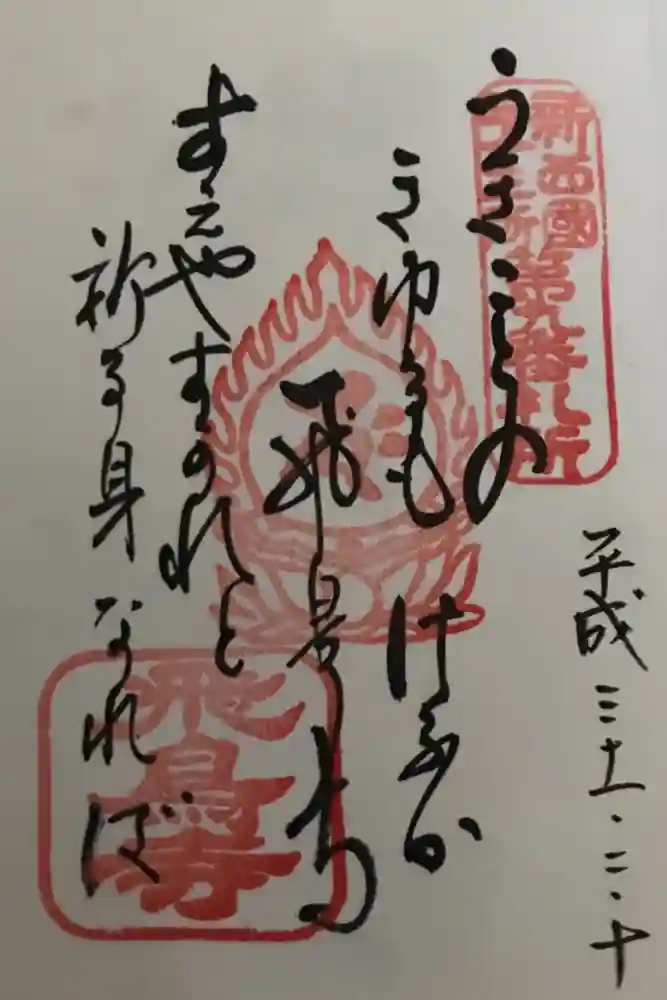 新西國
第九番札所
平成三十一・二・十
うきことの
きゆるもけふか
飛鳥寺
すえやすかれと
祈る身なれば
飛鳥寺